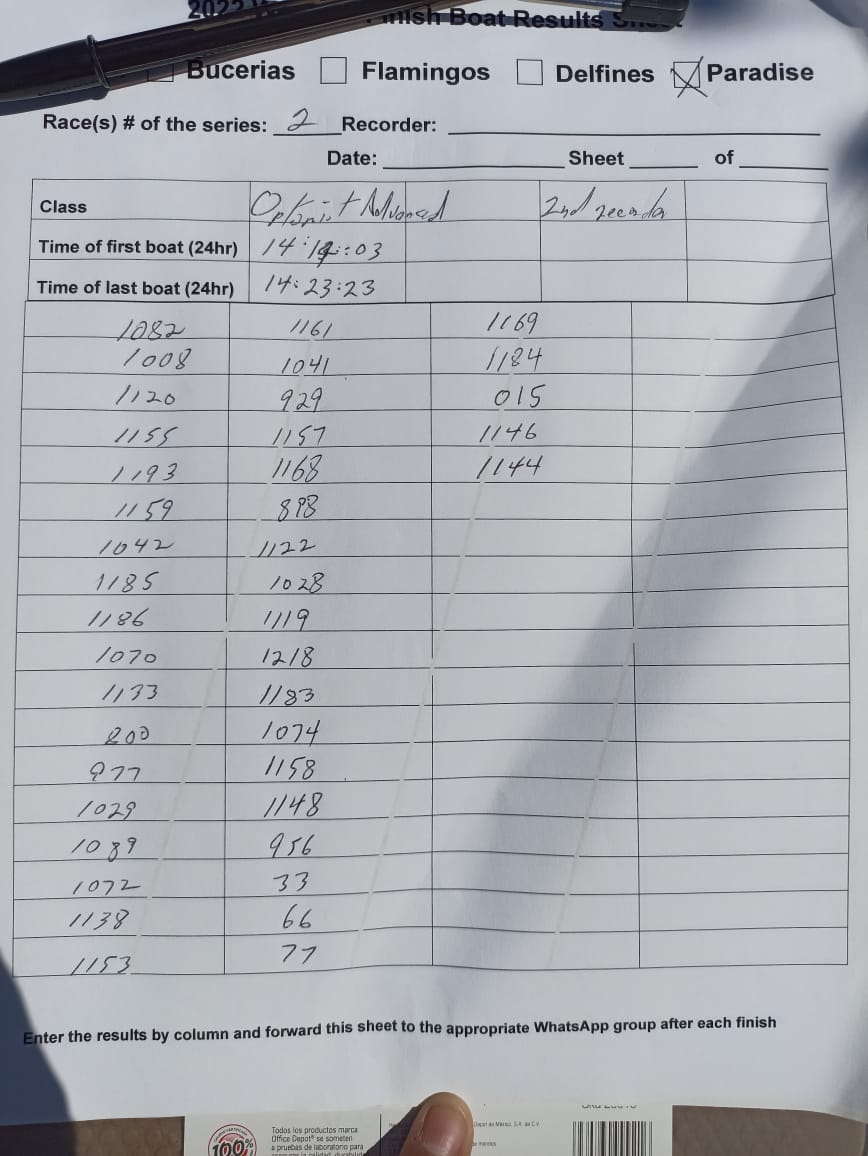 2022
Finish Boat Results
Bucerias Flamingos Delfines Paradise
Race(s) # of the series: 2 Recorder:
Date: Sheet of
Class Optimist Advanced 2nd recorder
Time of first boat (24hr) 14:12:03
Time of last boat (24hr) 14:23:23
1082 1161 1169
1008 1041 1184
1120 929 015
1155 1157 1146
1193 1168 1144
1159 898
1042 1122
1185 1028
1186 1119
1070 1218
1133 1183
800 1074
977 1158
1029 1148
1089 956
1072 33
1138 66
1153 77
Enter the results by column and forward this sheet to the appropriate WhatsApp group after each finish
Todos los productos marca
Office Depot® se someten
a pruebas de laboratorio para
100%
Depot de México, S.A. de C.V